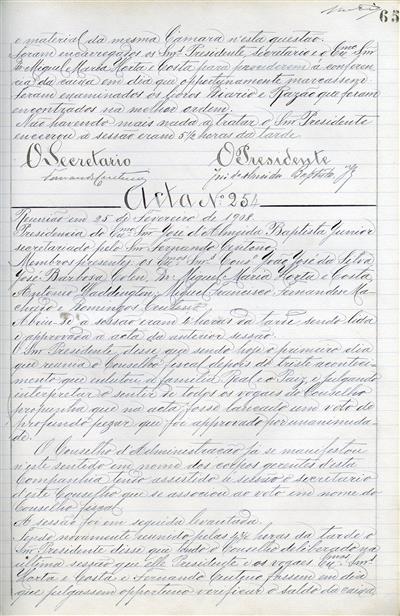 65
e material da mesma Camara n'esta questão.
Foram encarregados os Snrs. Presidente, Secretario e o Exmo. Snr.
Dr. Miguel Maria Horta e Costa para procederem á conferen-
cia da caixa em dia que opportunamente marcassem.
Foram examinados os livros Diario e Razão que foram
encontrados na melhor ordem.
Não havendo mais nada a tratar o Snr. Presidente
encerrou a sessão eram 5½ horas da tarde.
O Secretario O Presidente
José d'Almeida Baptista Jr
Acta Nº 254
Reunião em 25 de Fevereiro de 1908.
Presidencia do Exmo. Snr. José d'Almeida Baptista Junior
secretariado pelo Snr. Fernando
Membros presentes os Exmos. Snrs. Consº João José da Silva
José Barbosa Colen, Dr. Miguel Maria Horta e Costa,
Antonio Waddington, Miguel Francisco Fernandes Ma-
chado, Domingos
Abriu-se a sessão eram 4 horas da tarde sendo lida
e approvada a acta da anterior sessão.
O Snr. Presidente disse que sendo hoje o primeiro dia
que reunia o Conselho fiscal depois do triste aconteci-
mento que enlutou a familia Real e o Paiz e julgando
interpretar o sentir de todos os vogaes do Conselho
propunha que na acta fosse lançado um voto de
profundo pezar que foi approvado por unanimida-
de.
O Conselho d'Administração já se manifestou
n'este sentido em nome dos corpos gerentes desta
Companhia tendo assistido á sessão o secretario
d'este Conselho que se associou ao voto em nome do
Conselho fiscal.
A sessão foi em seguida levantada.
Tendo novamente reunido pelas 4¾ horas da tarde o
Snr. Presidente disse que tendo o Conselho deliberado na
ultima sessão que elle Presidente e os vogaes Exmos. Snrs.
Horta e Costa e Fernando fossem em dia
que julgassem opportuno verificar o saldo da caixa,